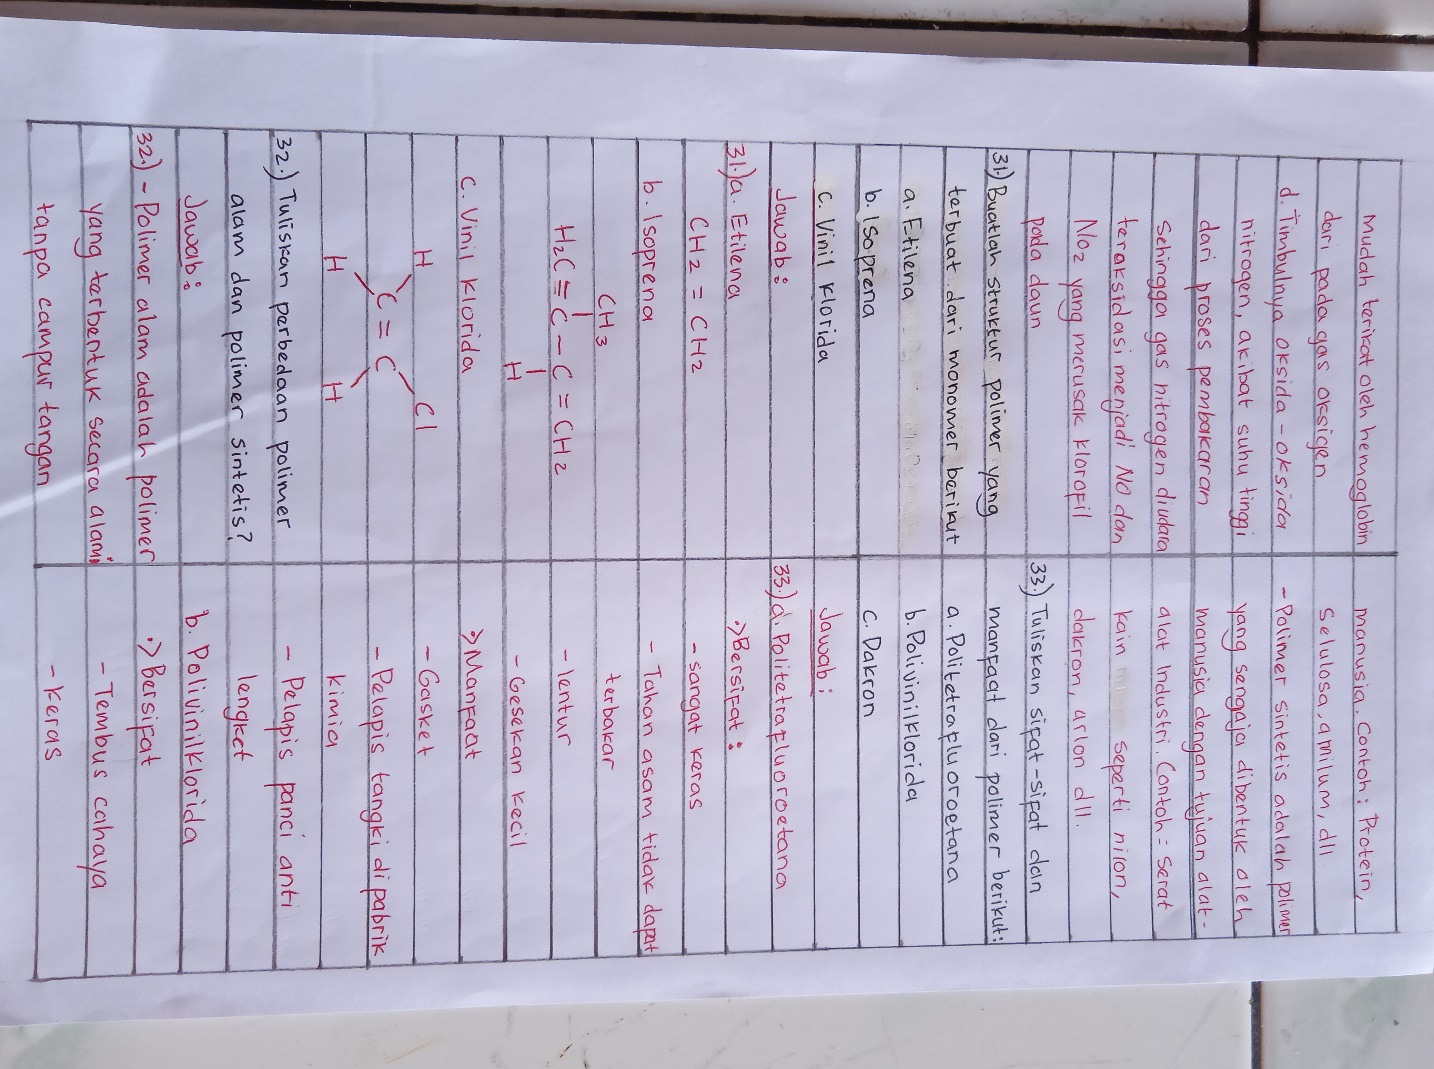 mudah terikat oleh hemoglobin
dari pada gas oksigen
d. Timbulnya oksida-oksida
nitrogen, akibat suhu tinggi
dari proses pembakaran
Sehingga gas nitrogen diudara
teroksidasi menjadi NO dan
NO2 yang merusak klorofil
pada daun
31.) Buatlah struktur polimer yang
terbuat dari monomer berikut
a. Etilena
b. Isoprena
c. Vinil klorida
Jawab:
31.) a. Etilena
CH2 = CH2
b. Isoprena
CH3
H2C = C - C = CH2
H
c. Vinil klorida
H Cl
C = C
H H
32.) Tuliskan perbedaan polimer
alam dan polimer sintetis?
Jawab:
32.) - Polimer alam adalah polimer
yang terbentuk secara alami
tanpa campur tangan
manusia. Contoh: Protein,
Selulosa, amilum, dll
- Polimer sintetis adalah polimer
yang sengaja dibentuk oleh
manusia dengan tujuan alat-
alat Industri. Contoh = Serat
kain seperti nilon,
dakron, arlon dll.
33.) Tuliskan sifat-sifat dan
manfaat dari polimer berikut:
a. Politetrafluoroetana
b. Polivinilklorida
c. Dakron
Jawab:
33.) a. Politetrafluoroetana
>Bersifat:
- sangat keras
- Tahan asam tidak dapat
terbakar
- lentur
- Gesekan kecil
>Manfaat
- Gasket
- Pelapis tangki di pabrik
kimia
- Pelapis panci anti
lengket
b. Polivinilklorida
>Bersifat
- Tembus cahaya
- Keras